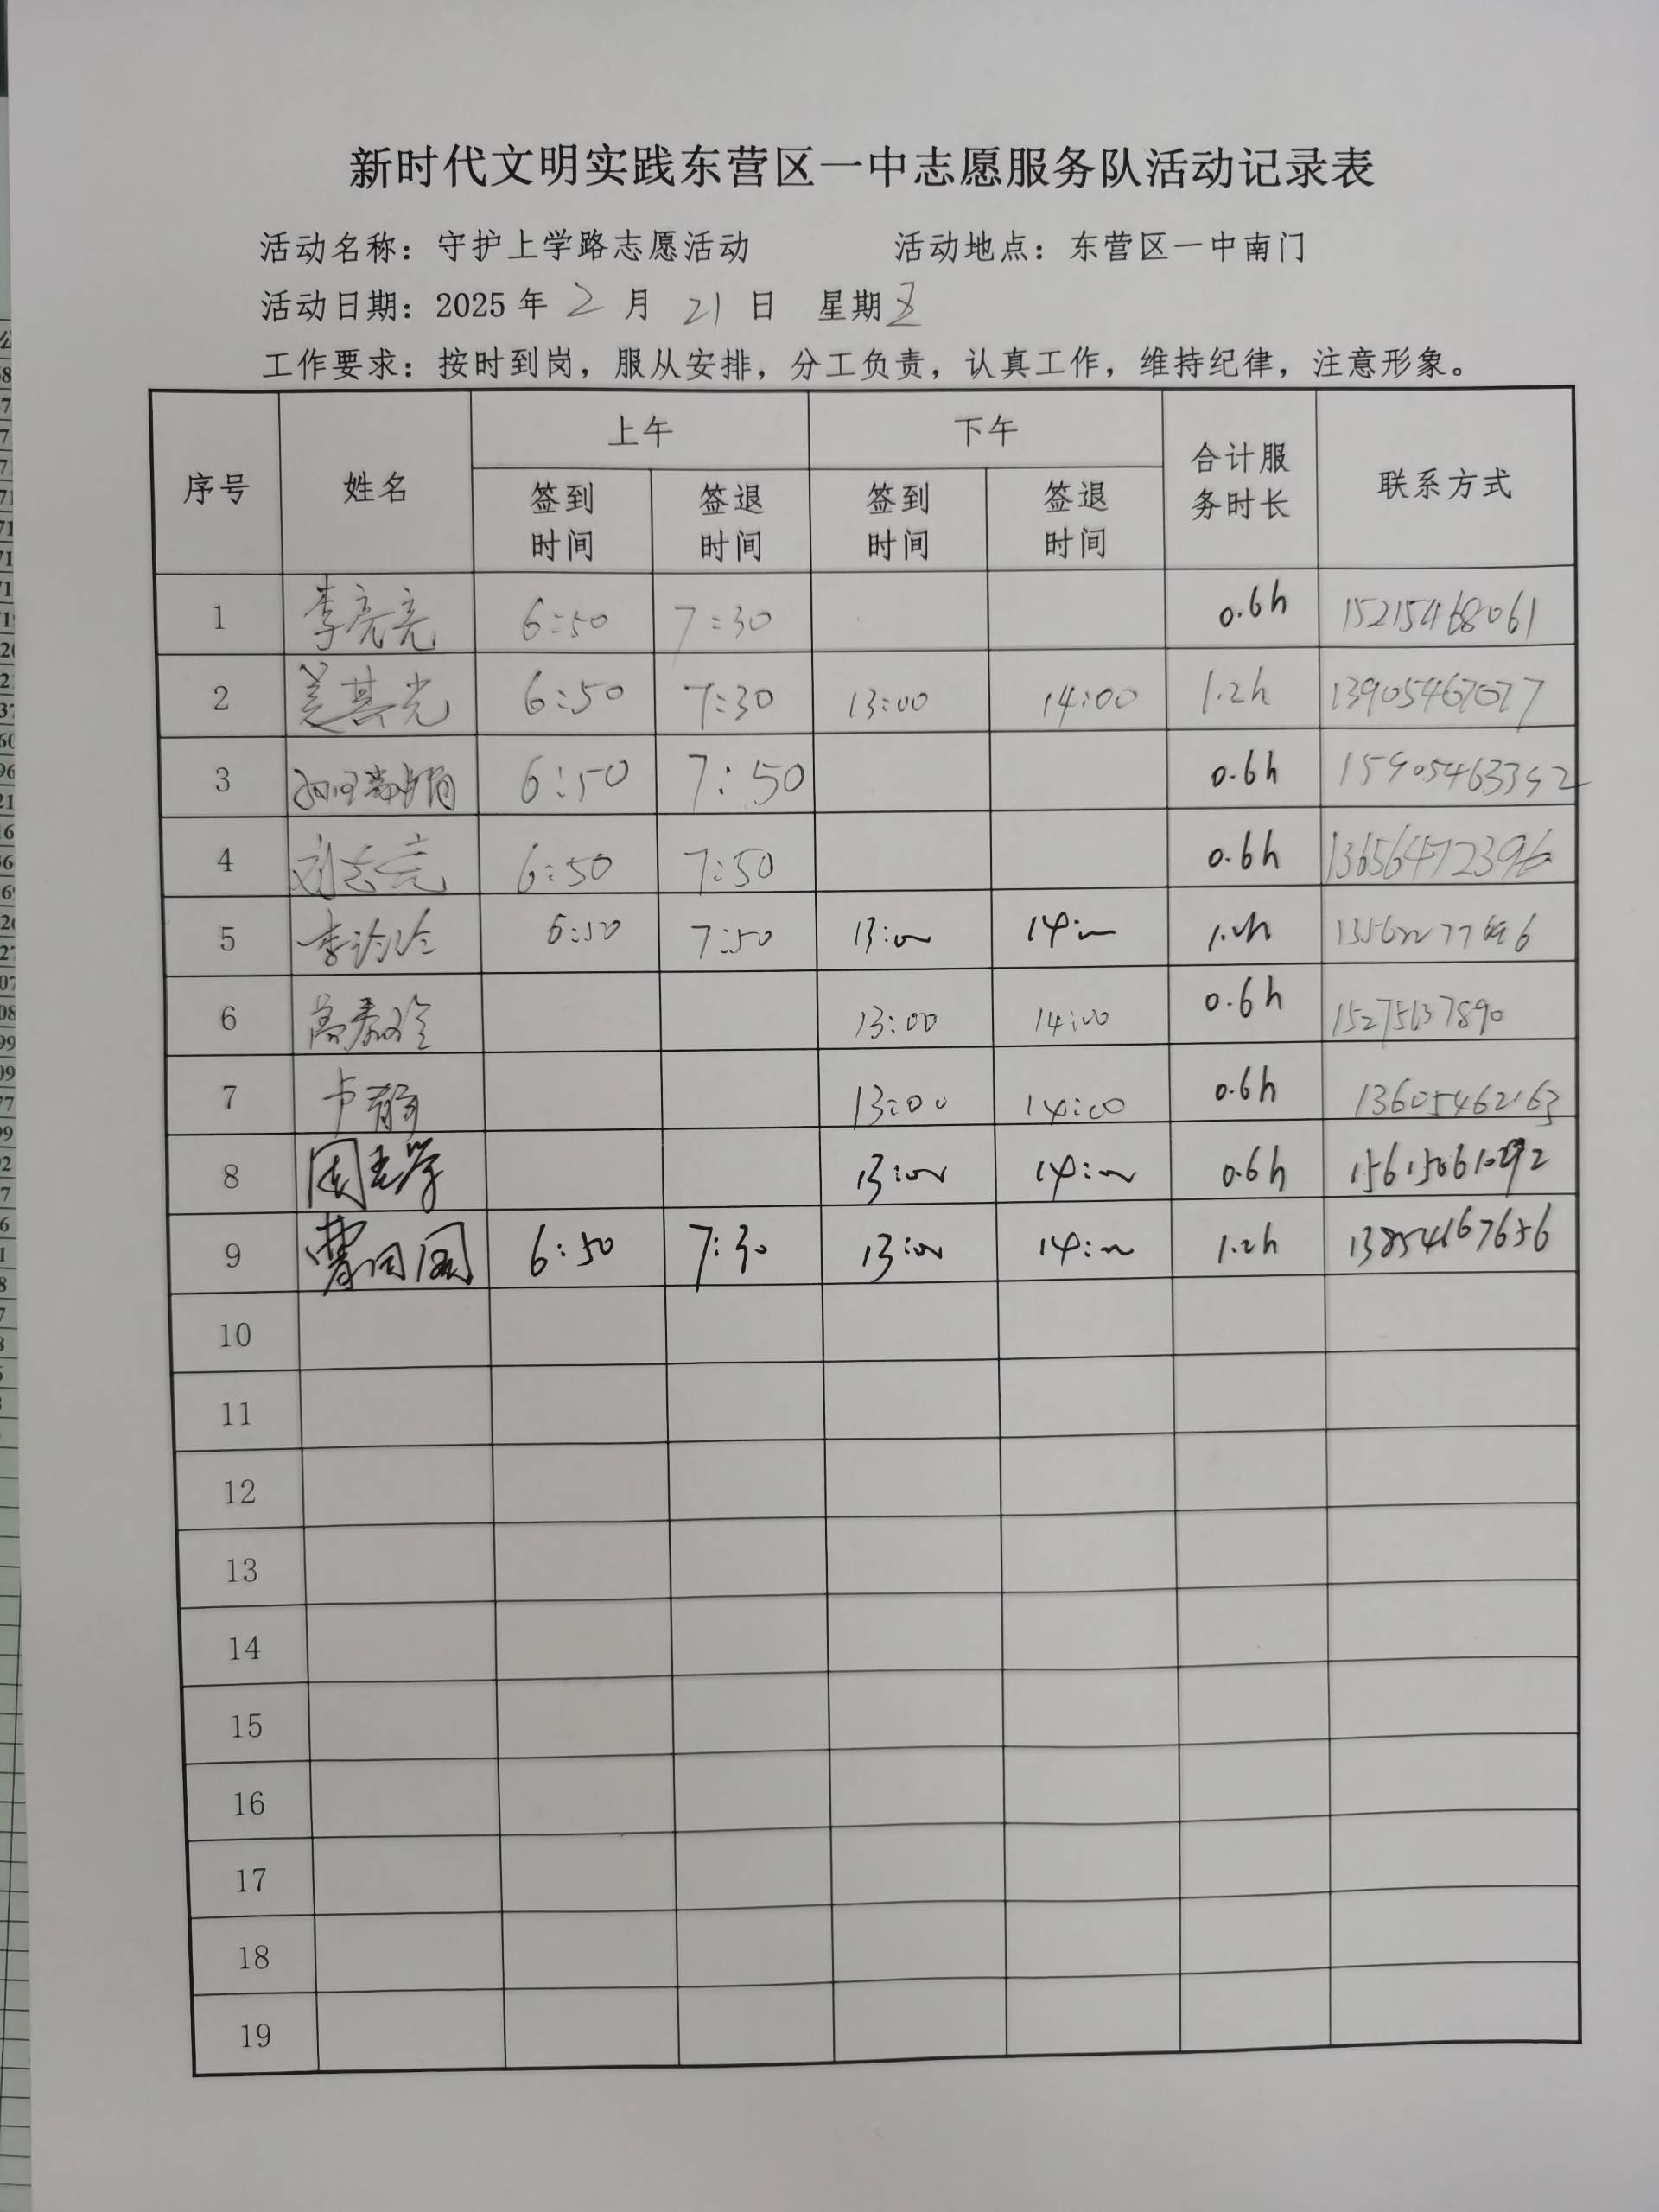 新时代文明实践东营区一中志愿服务队活动记录表
活动名称：守护上学路志愿活动 活动地点：东营区一中南门
活动日期：2025年 2 月 21 日 星期五
工作要求：按时到岗，服从安排，分工负责，认真工作，维持纪律，注意形象。
序号 姓名 上午 下午 合计服务时长 联系方式
签到时间 签退时间 签到时间 签退时间
1 李亮亮 6:50 7:30 0.6h 15215468061
2 姜其光 6:50 7:30 13:00 14:00 1.2h
3 6:50 7:50 0.6h 15905463392
4 刘志亮 6:50 7:50 0.6h 13656472396
5 6:50 7:50 13:00 14:00 1.2h
6 高秀玲 13:00 14:00 0.6h
7 卢静 13:00 14:00 0.6h 13605462163
8 13:00 14:00 0.6h
9 6:50 7:30 13:00 14:00 1.2h 13854167656
10
11
12
13
14
15
16
17
18
19